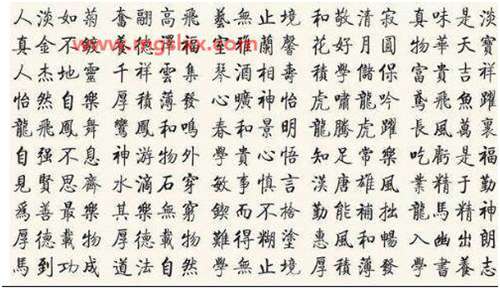 人淡如菊 奮翮高飛 藝無止境 和敬清寂 真味是淡
真金不鍍 養德種福 雅蘭馨 花好月圓 物華天寶
人杰地靈 千祥雲集 琴酒相壽 學儲保 富貴吉祥
怡然自樂 厚積薄發 心曠神怡 虎嘯龍吟 鳶飛魚躍
龍飛鳳舞 鸞鳳和鳴 春和景明 龍騰虎躍 長風萬裏
自强不息 神游物外 學貴心悟 知足常樂 吃虧是福
見賢思齊 水滴石穿 敏事慎言 漢唐雄風 業精于勤
爲善最樂 其樂無窮 鍥而不捨 勤能補拙 龍馬精神
厚德載物 厚德載物 難得糊塗 惠風和暢 入幽出朗
馬到功成 道法自然 學無止境 厚積薄發 學書養志